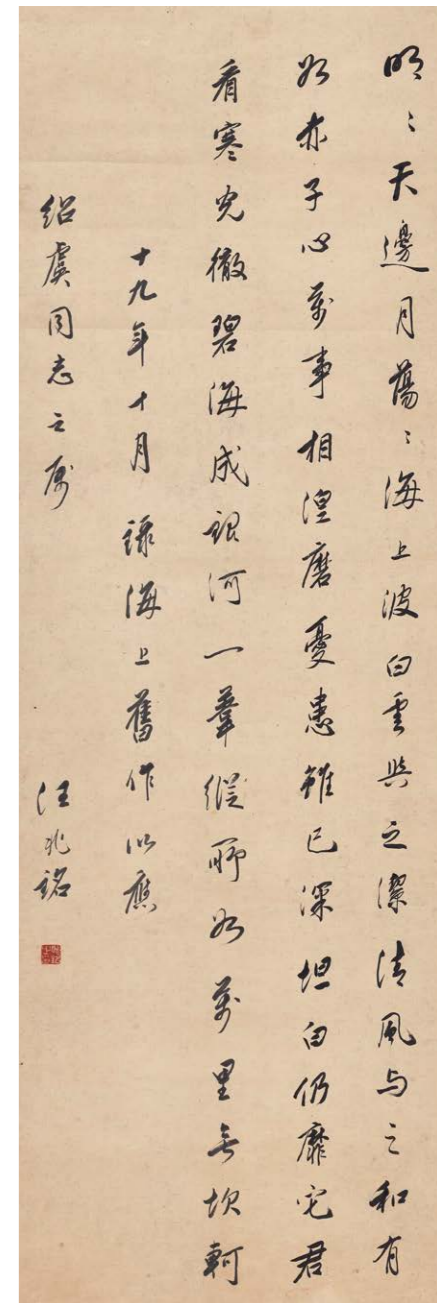 明〻天邊月蕩〻海上波白雲與之潔清風与之和有
如赤子心萬事相湼磨憂患雖已深坦白仍靡它君
看寒光徹碧海成銀河一葦縱所如萬里無坎軻
十九年十月錄海上舊作以應
紹虞同志之屬 汪兆銘